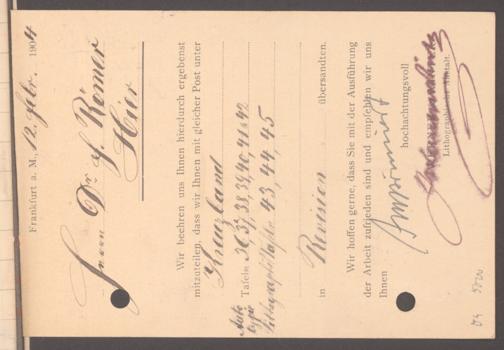 Frankfurt a. M., 12. Febr. 1904
Herrn Dr. F. Römer
Hier
Wir beehren uns Ihnen hierdurch ergebenst
mitzuteilen, dass wir Ihnen mit gleicher Post unter
Kreuzband
Tafeln 36, 37, 38, 39, 40, 41 & 42
Tafeln 43, 44, 45
in Revision übersandten.
Wir hoffen gerne, dass Sie mit der Ausführung
der Arbeit zufrieden sind und empfehlen wir uns
Ihnen
hochachtungsvoll
Lithographische Anstalt.